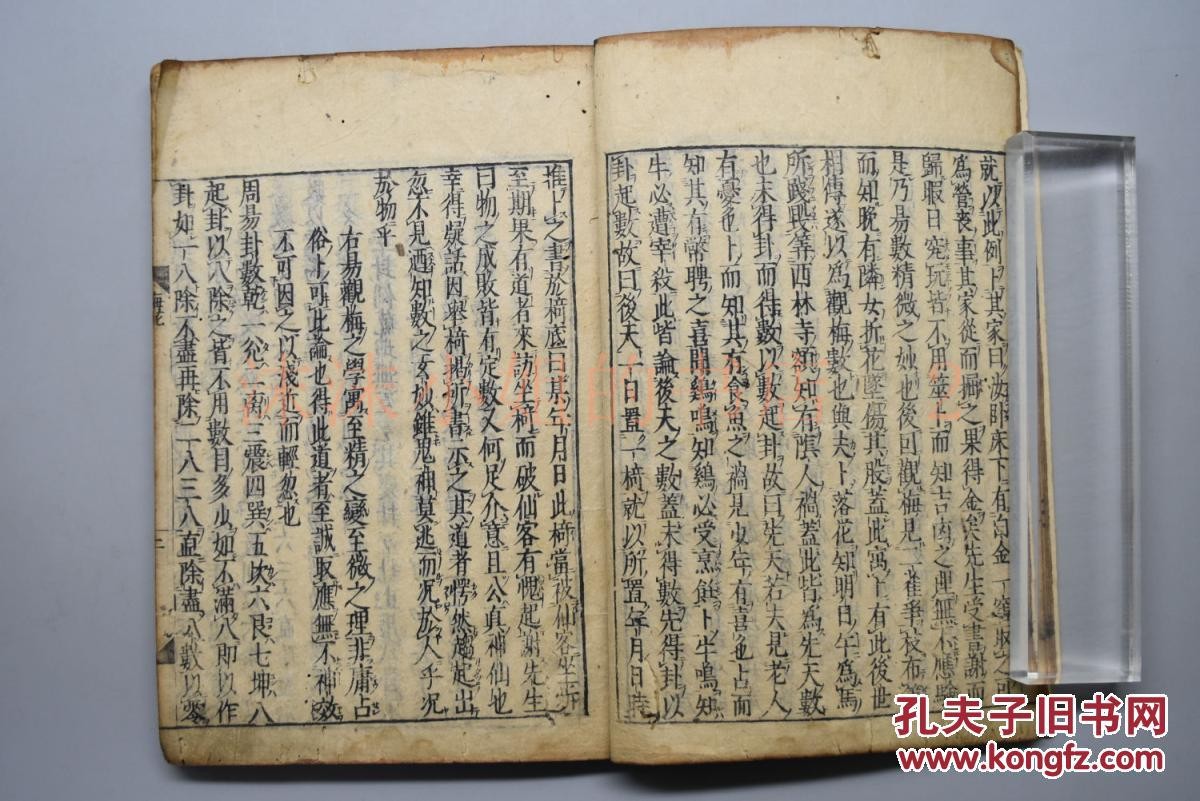 就以此例卜其家曰汝臥床下有白金
為營喪事其家從而掘之果得金矣先生受書謝
歸暇日究玩皆不用筮卜而知吉凶之理無不應驗
是乃易數精微之妙也後因觀梅見二雀爭枝布
而知晚有隣女折花墜傷其股蓋此寓卜有此後世
相傳遂以為觀梅數也與夫卜落花知明日午為馬
所踐毀筭西林寺額知有陰人禍蓋此皆為先天數
也未得卦而得數以數起卦故曰先天若夫見老人
有憂色卜而知其有食魚之禍見少年有喜色占而
知其有幣聘之喜聞鷄鳴知鷄必受烹飪卜牛鳴知
牛必遭宰殺此皆論後天之數蓋未得數先得卦以
卦起數故曰後天一日置一椅就以所置年月日時
推卜之書於椅底曰某年月日此椅當被仙客坐
至期果有道者來訪坐椅而破仙客有愧起謝先生
曰物之成敗皆有定數又何足介意且公真神仙也
幸得娛話因舉椅揭所書示之其道者愕然趨起出
忽不見迺知數之妙雖鬼神莫逃而况於人乎况
於物乎
右易觀梅之學寓至精之變至微之理非庸占
俗卜可此論也得此道者至誠取應無不神效
不可因之以淺近而輕忽也
周易卦數乾一兌二离三震四巽五坎六艮七坤八
起卦以八除之皆不用數目多少如不滿八即以作
卦如一八除不盡再除二八三八直除盡八數以零
梅花
二
孔夫子旧书网
www.kongfz.com